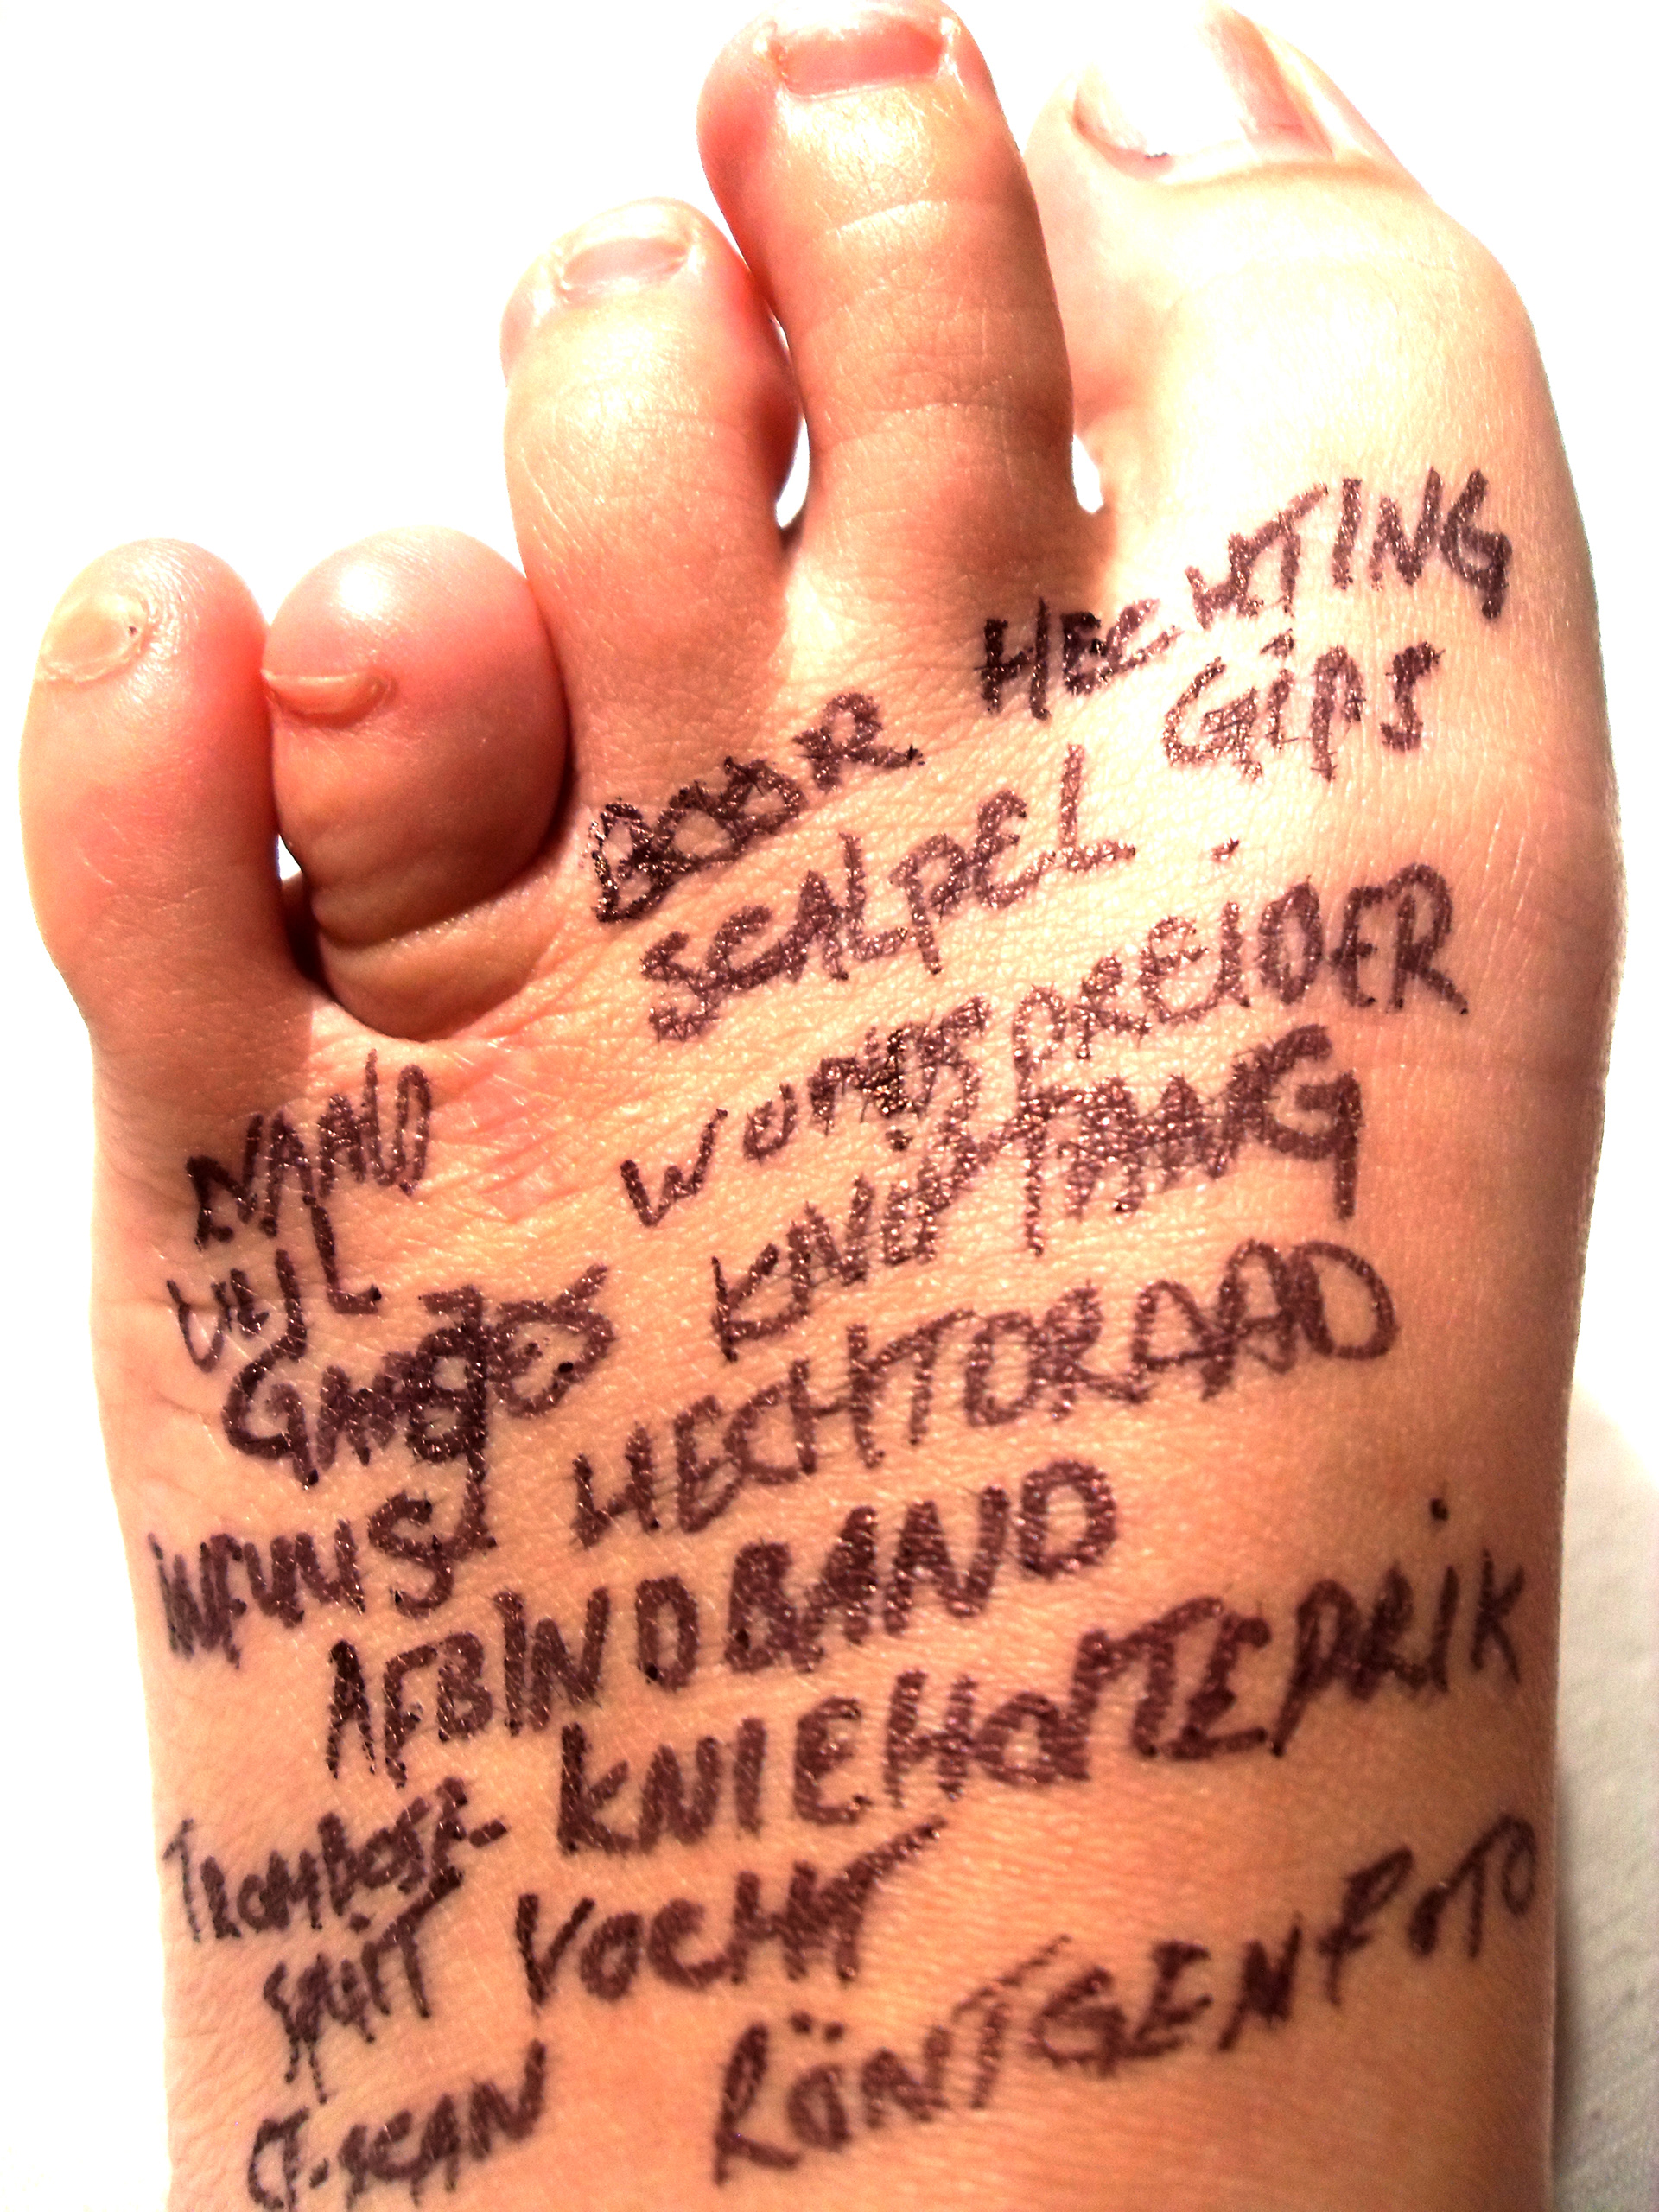 HECHTING
GIPS
BOOR
SCALPEL
WONDSPREIDER
KNIPTANG
NAALD
VIJL
GAASJES
HECHTDRAAD
INFUUS
AFBINDBAND
KNIEHOLTEPRIK
TROMBOSE-
SPUIT
VOCHT
RÖNTGENFOTO
CT-SCAN